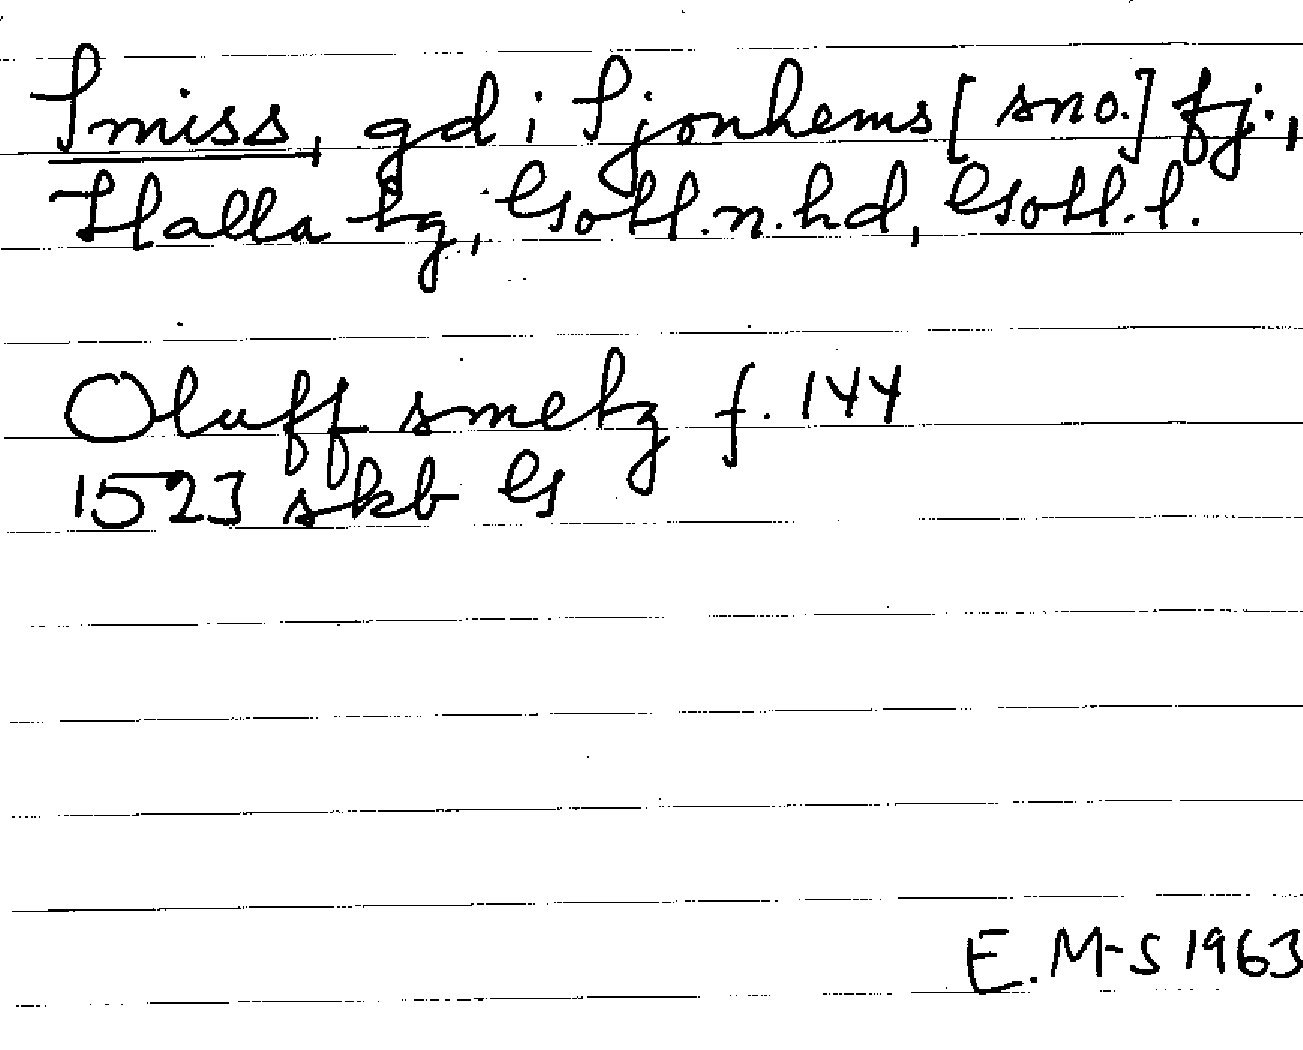 Smiss, gd i Sjonhems [sno.] fj.,
Halla tg, Gotl. n. hd, Gotl. l.
Oluff smetz f. 144
1523 skb G
E. M-S 1963